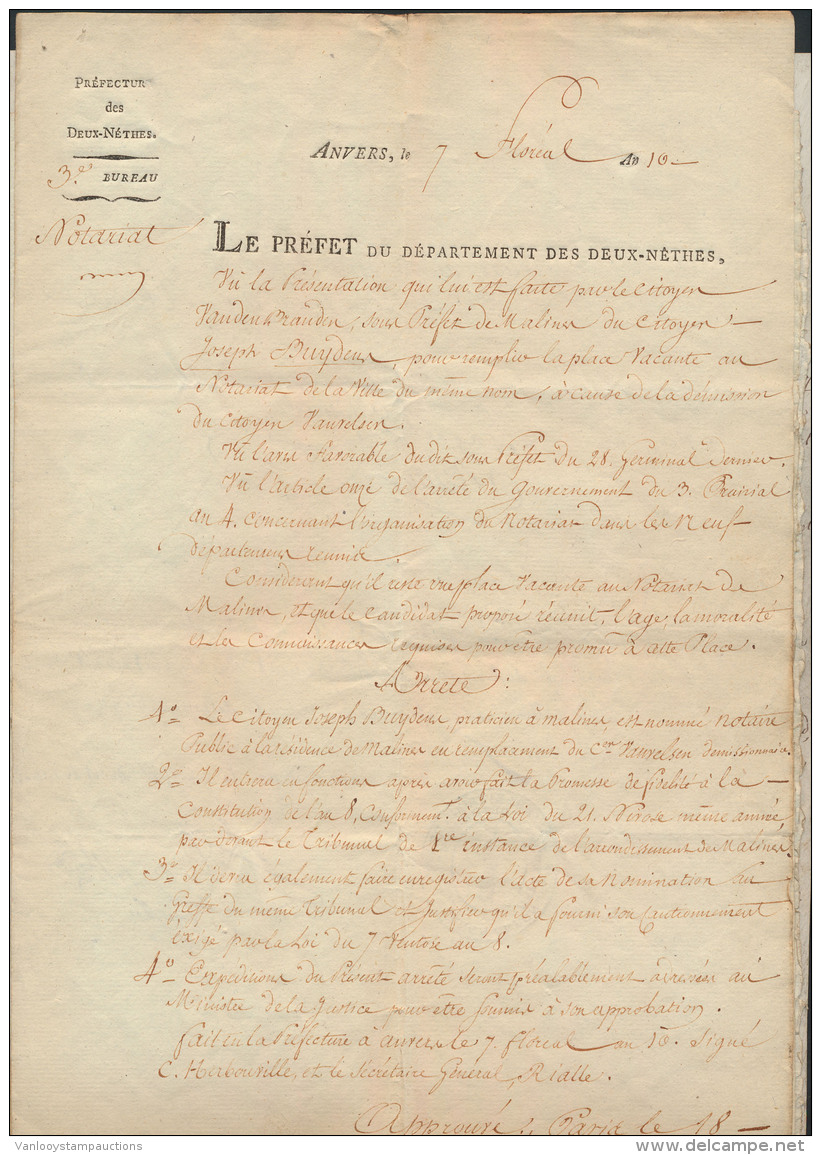 PRÉFECTUR
des
DEUX-NÉTHES.
3.e BUREAU
Notariat
ANVERS, le 7 Floréal An 10
LE PRÉFET DU DÉPARTEMENT DES DEUX-NÈTHES,
Vû la Présentation qui lui est faite par le Citoyen
Vandenbranden, sous Préfet de Malines du Citoyen
Joseph Buydens, pour remplir la place Vacante au
Notariat de la Ville du même nom, à cause de la démission
du Citoyen Vanrelsen.
Vû l'avis Favorable du dit sous Préfet du 28. Germinal dernier.
Vû l'article onze de l'arrêté du Gouvernement du 3. Prairial
an 4. concernant l'organisation du Notariat dans les Neuf
départemens réunis.
Considérant qu'il reste une place Vacante au Notariat de
Malines, et que le candidat proposé réunit, l'age, la moralité
et les Connoissances requises pour être promû à cette Place.
Arrete :
1.° Le Citoyen Joseph Buydens praticien à malines, est nommé Notaire
Public à la résidence de Malines en remplacement du C.en Vanrelsen démissionnaire.
2.° Il entrera en fonctions après avoir fait la Promesse de fidelité à la
Constitution de l'an 8, Conformem.t à la Loi du 21. Nivose même année
par devant le Tribunal de 1.re instance de l'arrondissement de Malines.
3.° Il devra également faire enregistrer l'acte de sa Nomination au
Greffe du même Tribunal et Justifier qu'il a fourni son Cautionnement
éxigé par la Loi du 7 Ventose an 8.
4.° Expeditions du Présent arrêté seront préalablement adressées au
Ministre de la Justice pour être soumis à son approbation.
fait en la Préfecture à anvers le 7. floréal an 10. Signé
C. Herbouville, et le Sécrétaire Général, Rialle.
Approuvé, Paris le 18
Vanlooystampauctions
delcampe.net